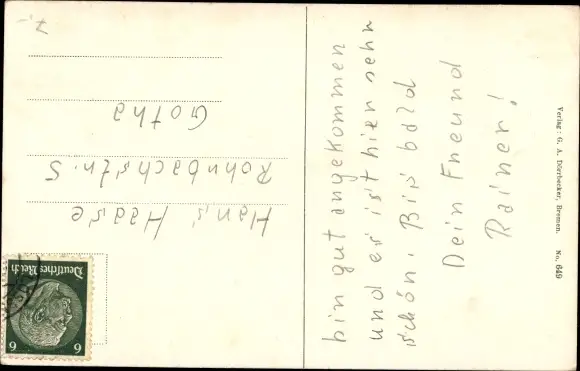 bin gut angekommen
und es ist hier sehr
schön. Bis bald
Dein Freund
Rainer!
Hans Haase
Rohrbachstr. 5
Gotha
7,-
Deutsches Reich
6 6
Verlag: G. A. Dörrbecker, Bremen. No. 649